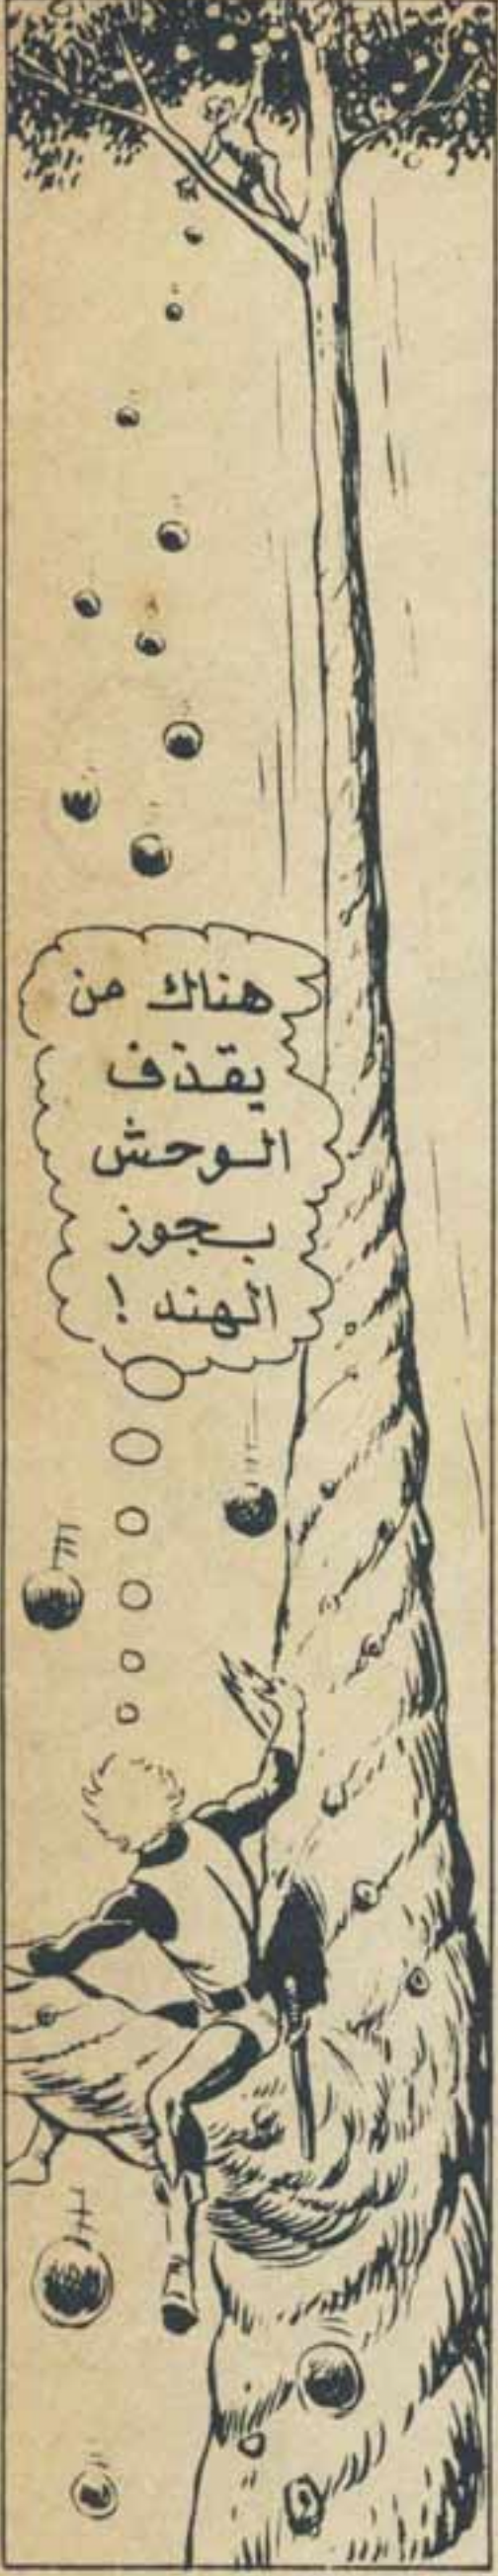 هناك من
يقذف
الوحش
بجوز
الهند !